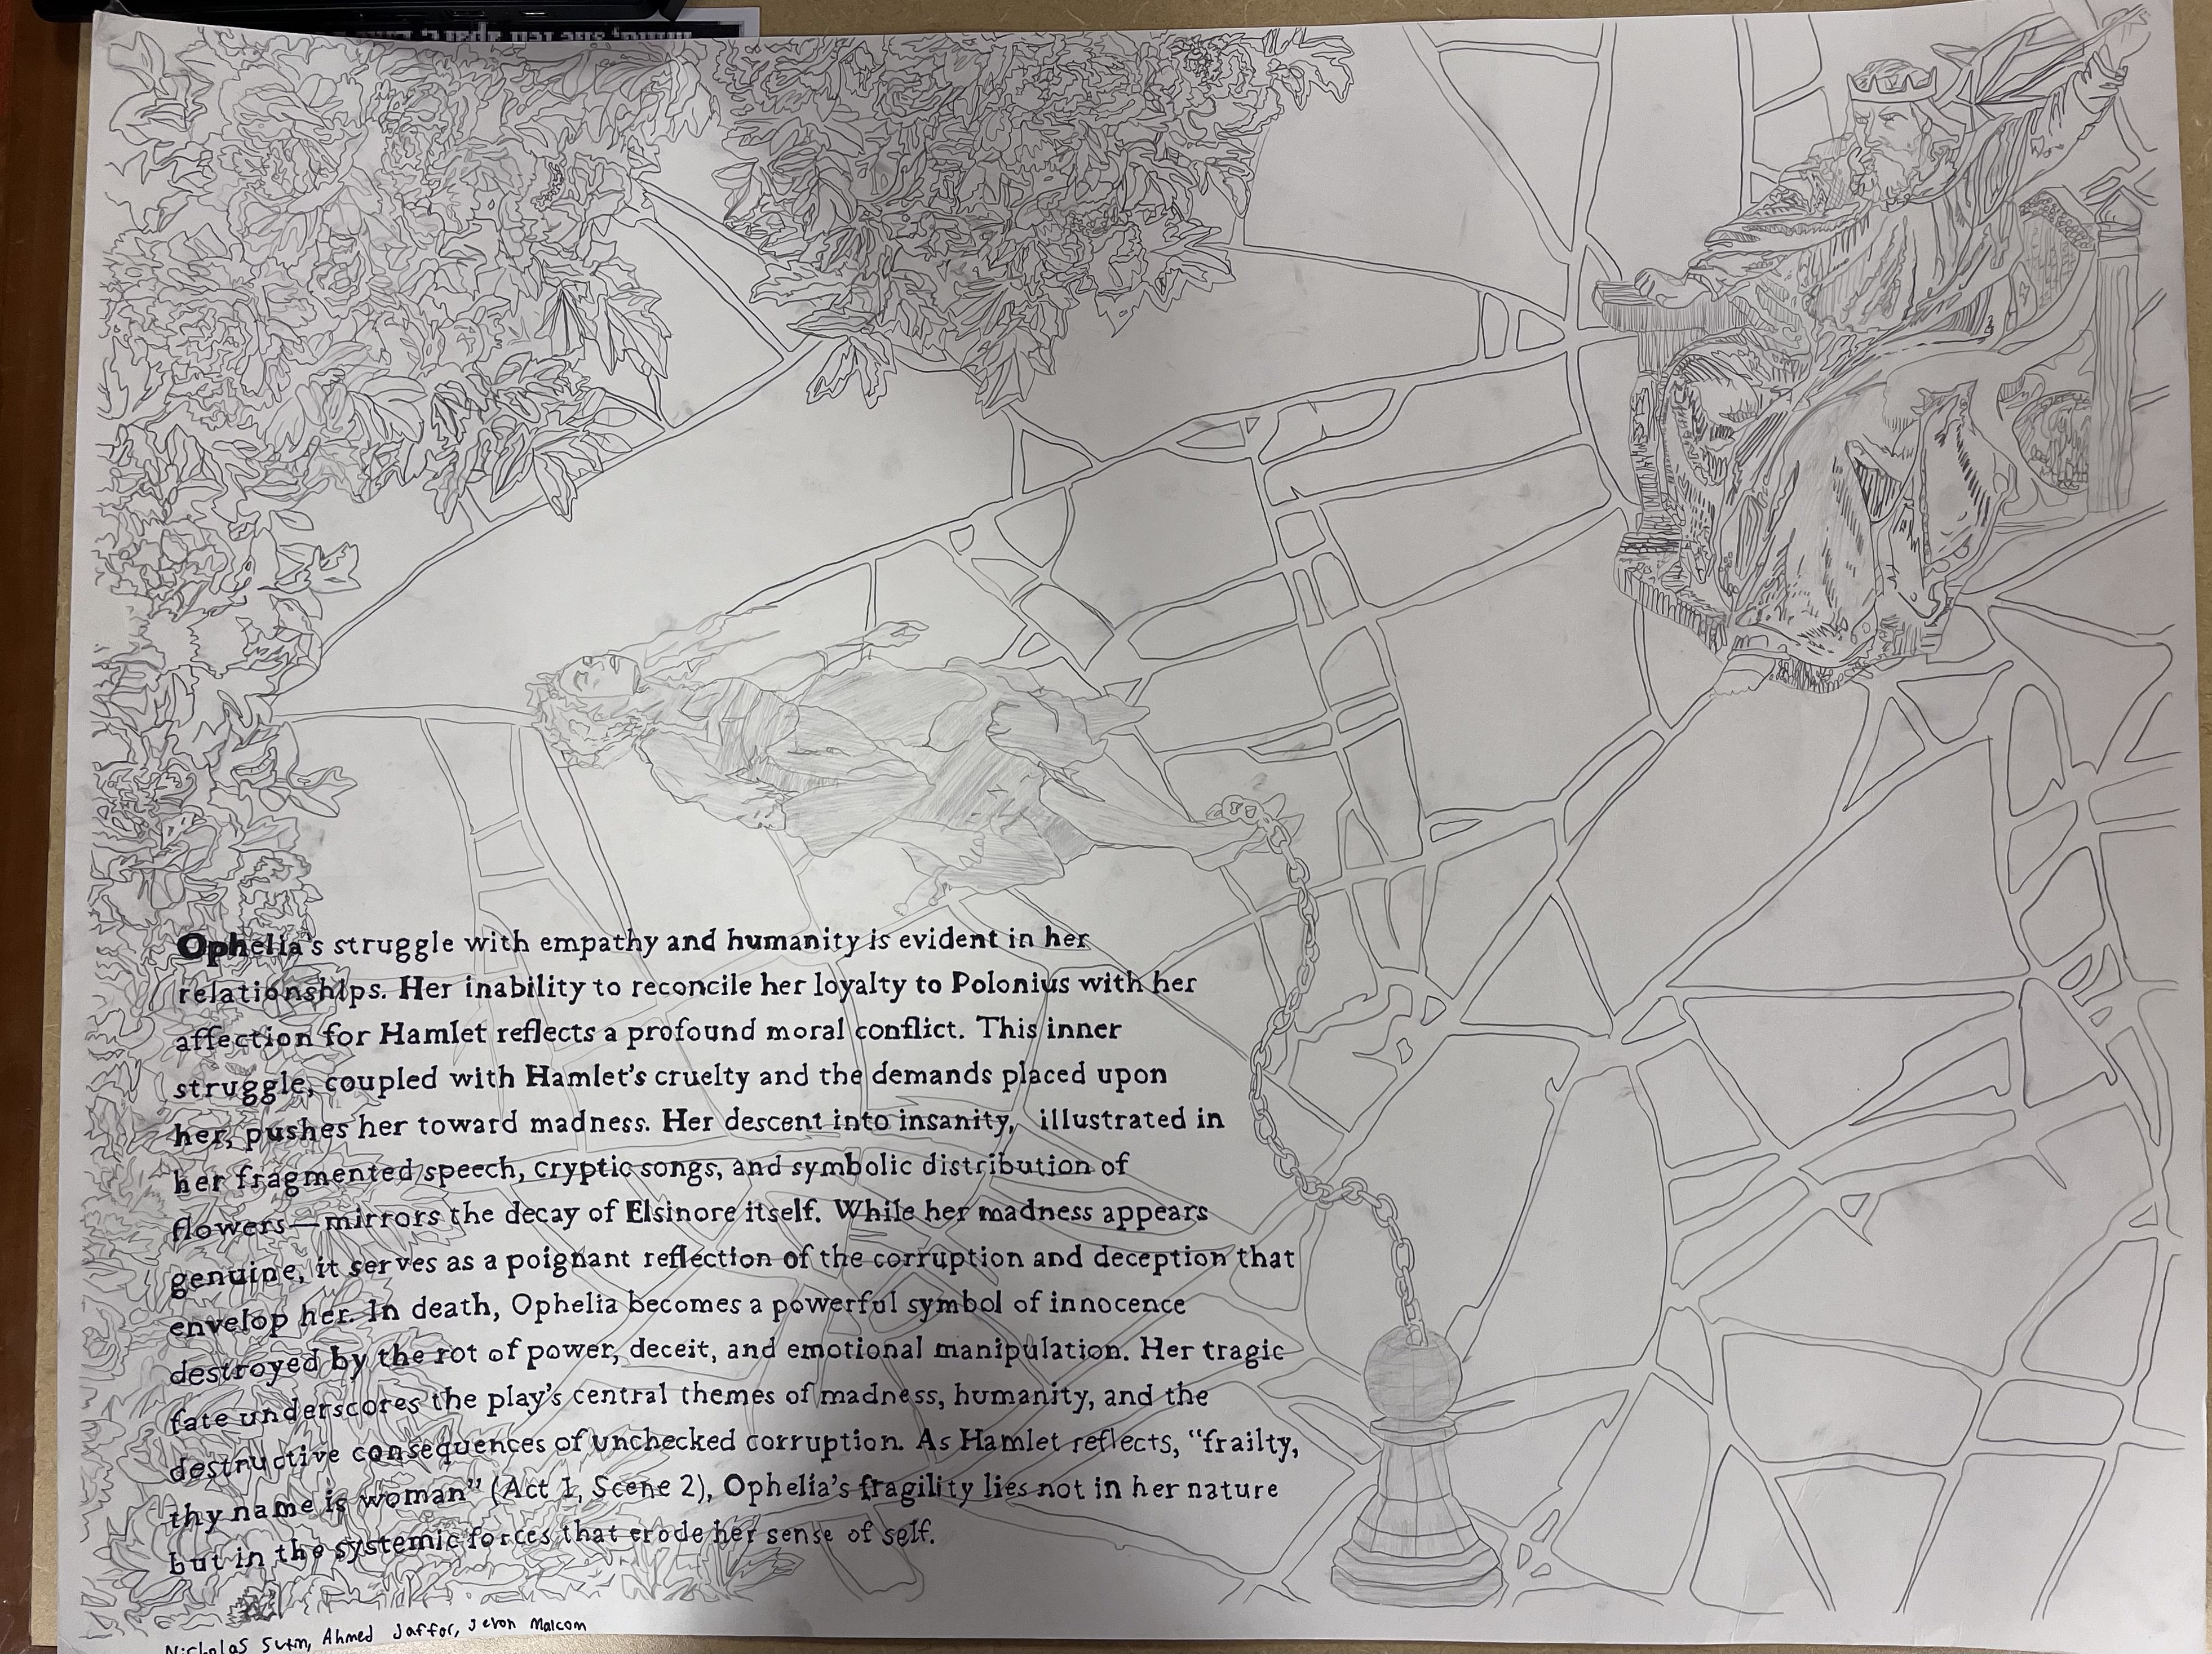 Ophelia's struggle with empathy and humanity is evident in her
relationships. Her inability to reconcile her loyalty to Polonius with her
affection for Hamlet reflects a profound moral conflict. This inner
struggle, coupled with Hamlet's cruelty and the demands placed upon
her, pushes her toward madness. Her descent into insanity, illustrated in
her fragmented speech, cryptic songs, and symbolic distribution of
flowers—mirrors the decay of Elsinore itself. While her madness appears
genuine, it serves as a poignant reflection of the corruption and deception that
envelop her. In death, Ophelia becomes a powerful symbol of innocence
destroyed by the rot of power, deceit, and emotional manipulation. Her tragic
fate underscores the play's central themes of madness, humanity, and the
destructive consequences of unchecked corruption. As Hamlet reflects, "frailty,
thy name is woman" (Act 1, Scene 2), Ophelia's fragility lies not in her nature
but in the systemic forces that erode her sense of self.
Nicholas Ahmed Jaffor, Jevon Malcom